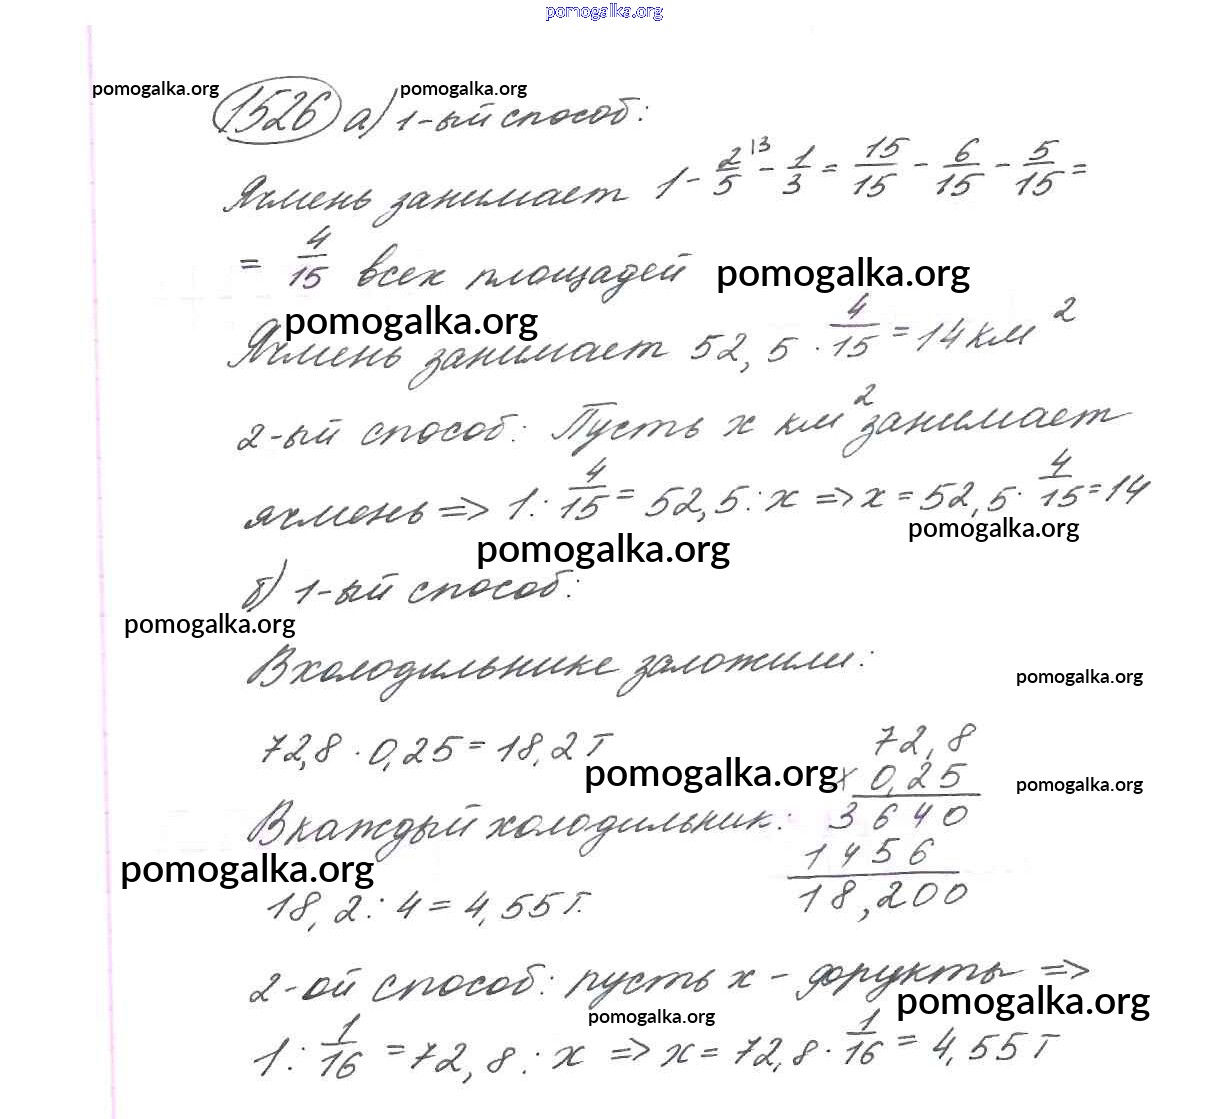 pomogalka.org
pomogalka.org pomogalka.org
1526 а) 1-ый способ:
Ячмень занимает 1 - 2/5 \3 - 1/3 = 15/15 - 6/15 - 5/15 =
= 4/15 всех площадей pomogalka.org
pomogalka.org
Ячмень занимает 52,5 · 4/15 = 14 км²
2-ый способ: Пусть x км² занимает
ячмень => 1 : 4/15 = 52,5 : x => x = 52,5 · 4/15 = 14
pomogalka.org
pomogalka.org
б) 1-ый способ:
pomogalka.org
В холодильнике заложили:
pomogalka.org
72,8 · 0,25 = 18,2 т
72,8
pomogalka.org
x 0,25
pomogalka.org
В каждый холодильник:
3640
1456
pomogalka.org
18,200
18,2 : 4 = 4,55 т.
2-ой способ: пусть x - фрукты =>
pomogalka.org
pomogalka.org
1 : 1/16 = 72,8 : x => x = 72,8 · 1/16 = 4,55 т